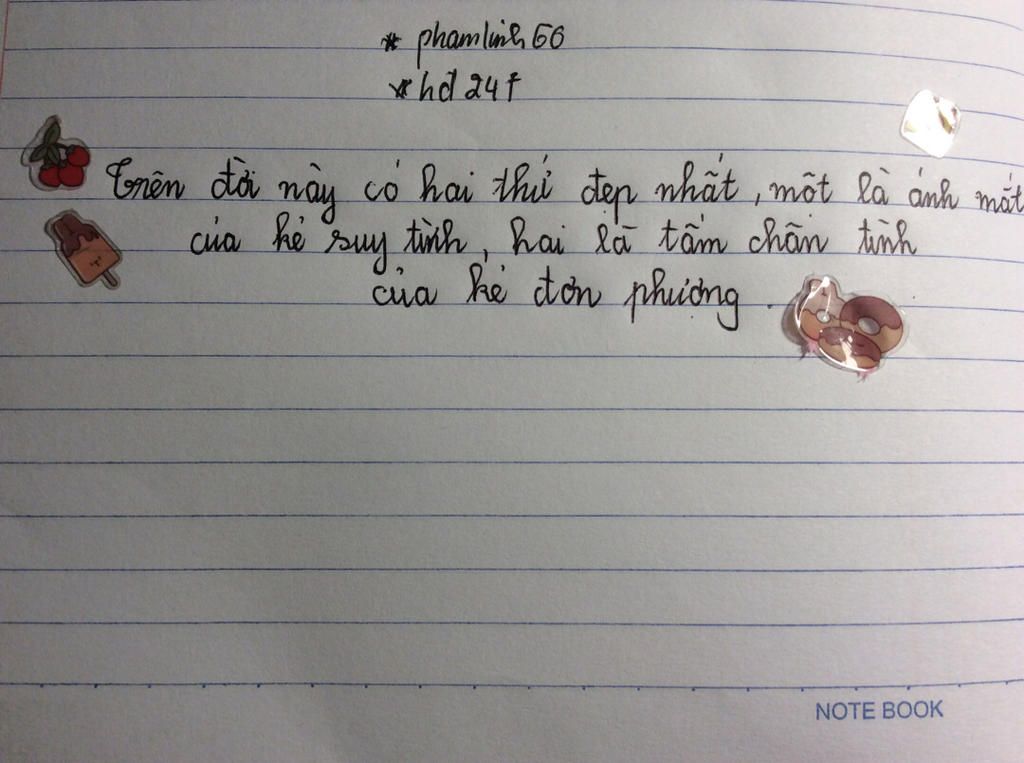 * phamlinh66
* hđ 247
Trên đời này có hai thứ đẹp nhất, một là ánh mắt
của kẻ suy tình, hai là tấm chân tình
của kẻ đơn phương.
NOTE BOOK